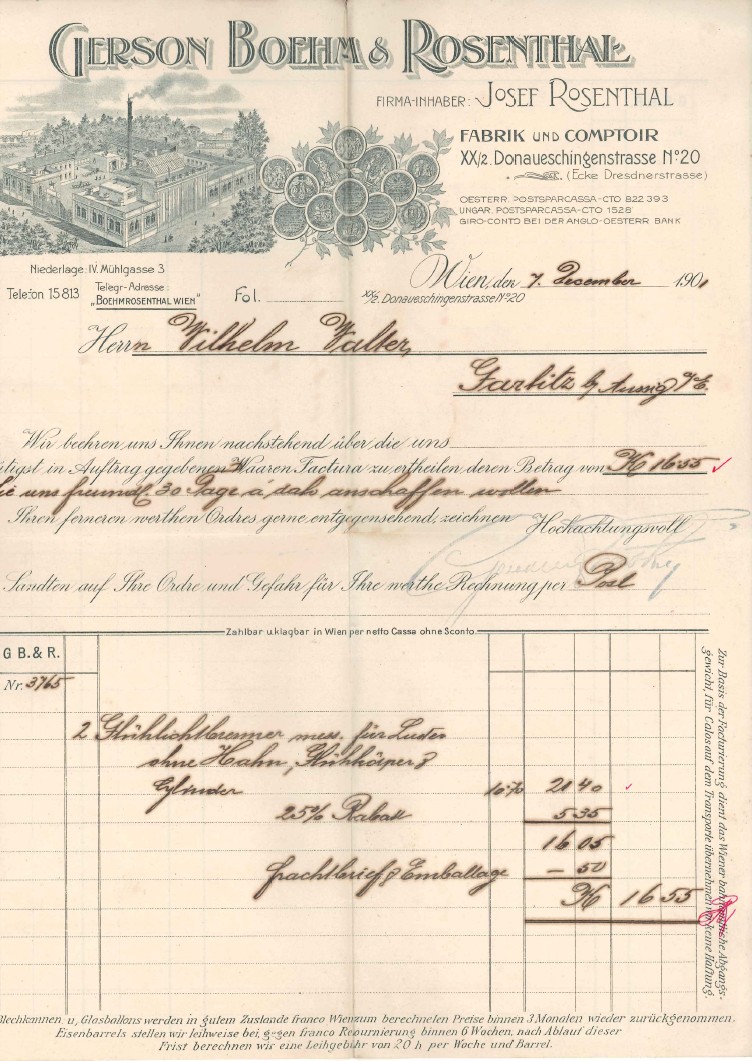 GERSON BOEHM & ROSENTHAL
FIRMA-INHABER: JOSEF ROSENTHAL
FABRIK UND COMPTOIR
XX/2. Donaueschingenstrasse No 20
(Ecke Dresdnerstrasse)
OESTERR. POSTSPARCASSA-CTO 822 393
UNGAR. POSTSPARCASSA-CTO 1528
GIRO-CONTO BEI DER ANGLO-OESTERR BANK
Niederlage: IV. Mühlgasse 3
Telefon 15 813
Telegr-Adresse:
„BOEHMROSENTHAL WIEN"
Fol.
Wien, den 7. December 1901
XX/2. Donaueschingenstrasse No 20
Herrn Wilhelm Walter,
Aussig
Wir beehren uns Ihnen nachstehend über die uns
tigst in Auftrag gegebenen Waaren Factura zu ertheilen deren Betrag von K 16 55
ie uns freundl. 30 Tage à dato anschaffen wollen
Ihren ferneren werthen Ordres gerne entgegensehend, zeichnen Hochachtungsvoll
Sandten auf Ihre Ordre und Gefahr für Ihre werthe Rechnung per Post
Zahlbar u. klagbar in Wien per netto Cassa ohne Sconto.
G B. & R.
Nr. 3765
2 Glühlichtbrenner mess. für Luster
ohne Hahn, Glühkörper &
Cylinder 10.70 21 40
25% Rabatt 5 35
16 05
Frachtbrief & Emballage – 50
K 16 55
Zur Basis der Facturierung dient das Wiener bahnamtliche Abgangs-
gewicht, für Calo auf dem Transporte übernehmen wir keine Haftung.
Blechkannen u. Glasballons werden in gutem Zustande franco Wien zum berechneten Preise binnen 3 Monaten wieder zurückgenommen.
Eisenbarrels stellen wir leihweise bei, gegen franco Retournierung binnen 6 Wochen, nach Ablauf dieser
Frist berechnen wir eine Leihgebühr von 20 h per Woche und Barrel.